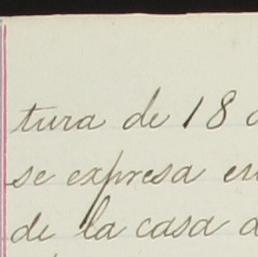 tura de 18
se expresa en
de la casa